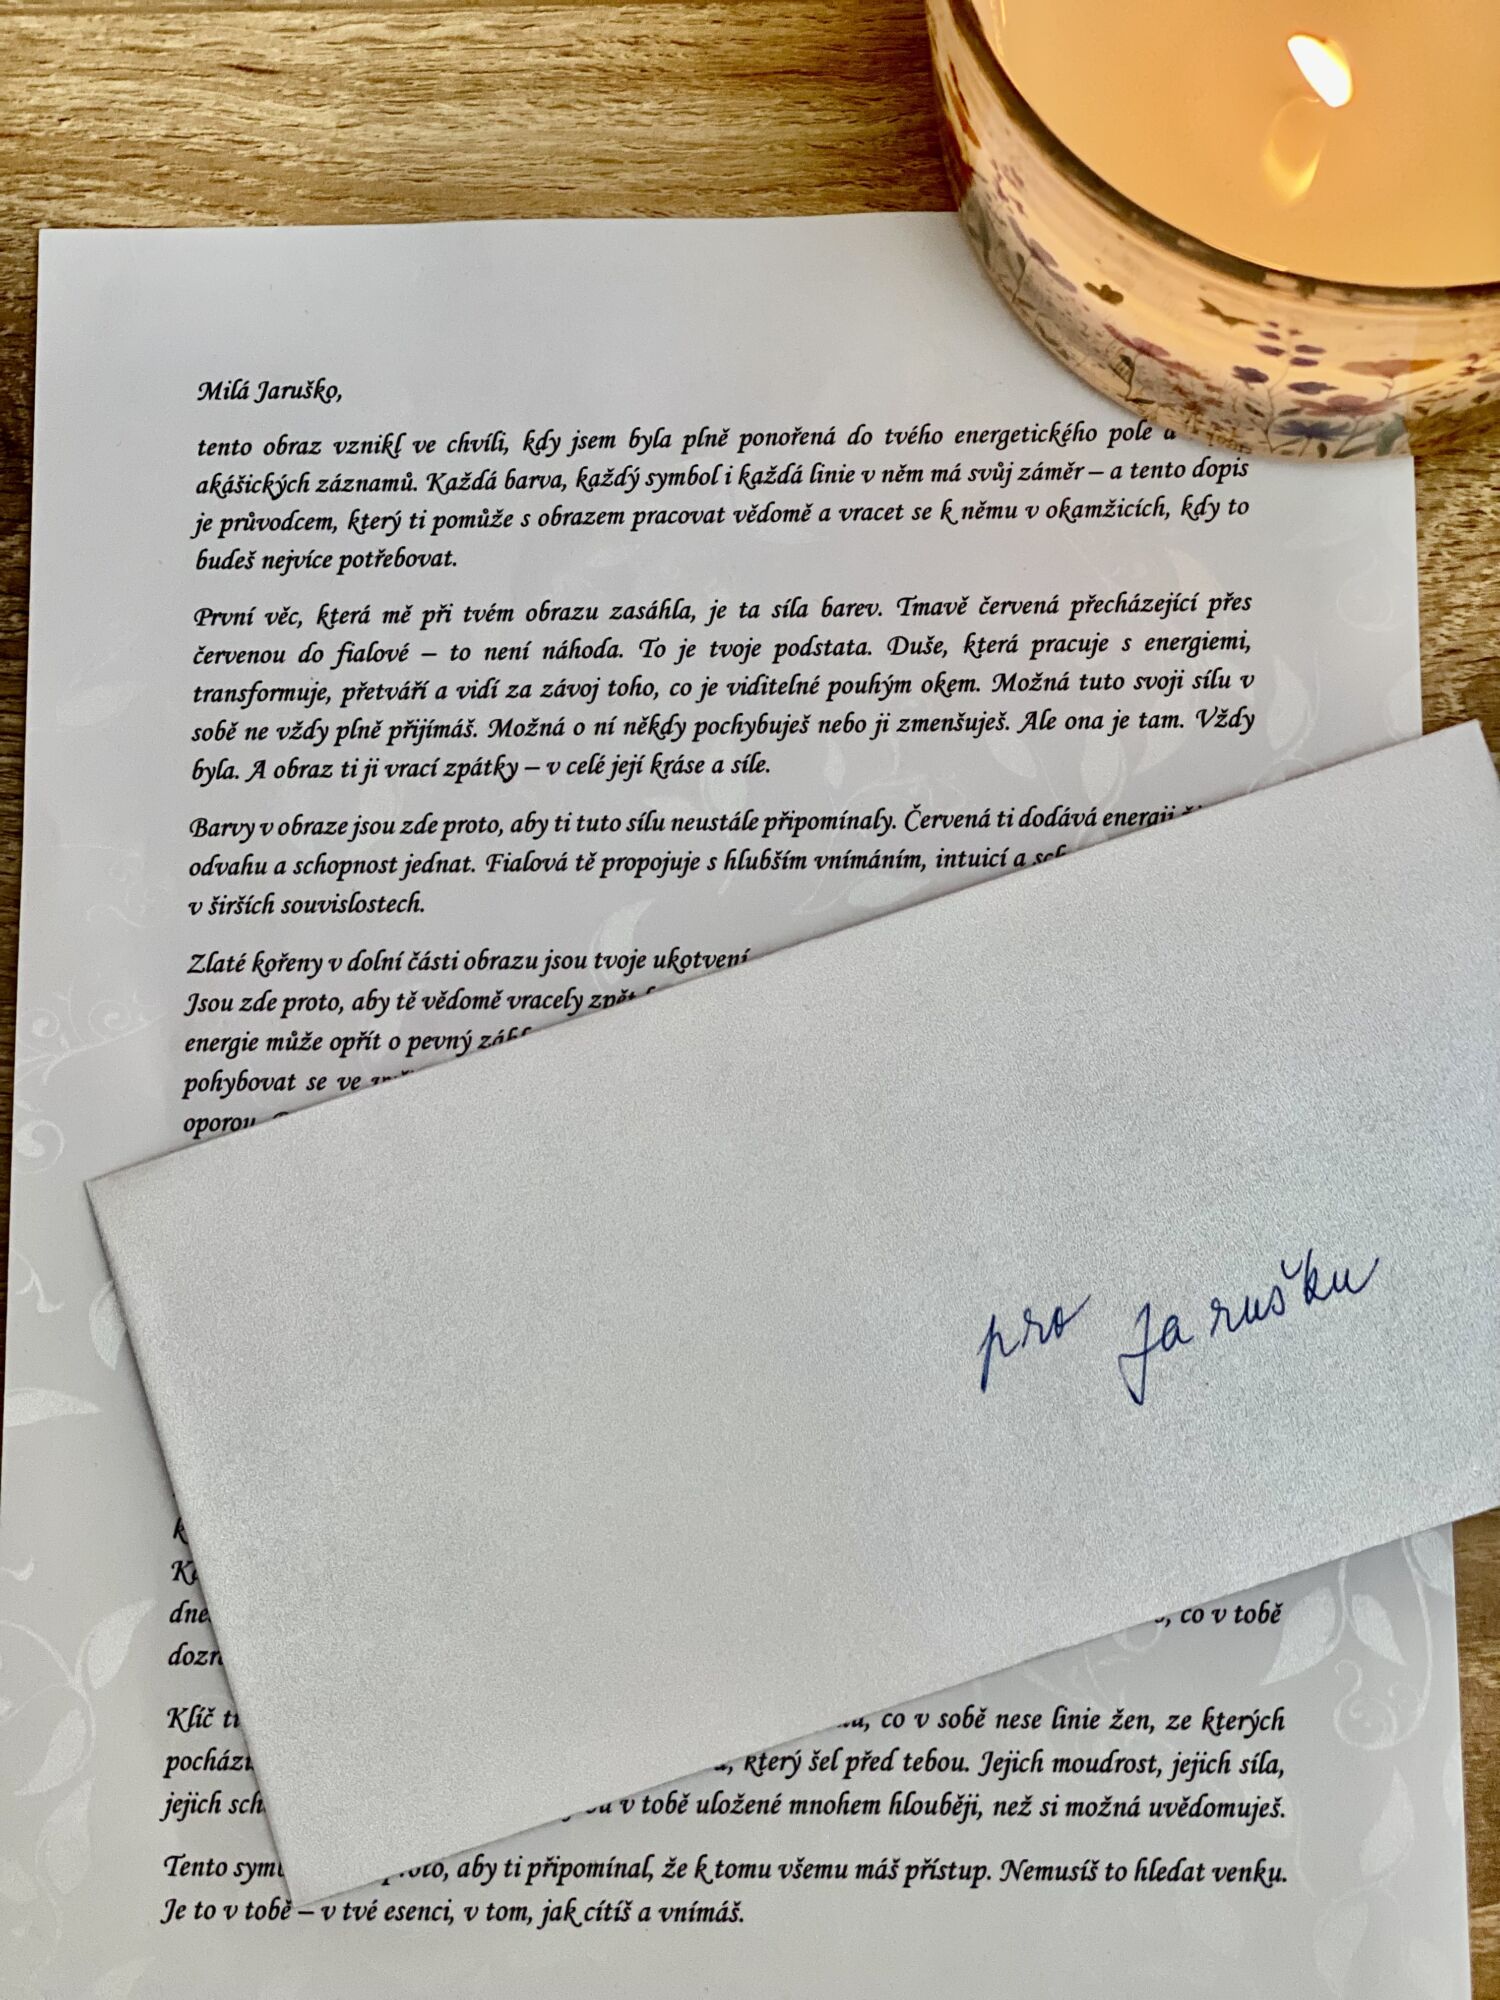 Milá Jaruško,
tento obraz vznikl ve chvíli, kdy jsem byla plně ponořená do tvého energetického pole a
akášických záznamů. Každá barva, každý symbol i každá linie v něm má svůj záměr – a tento dopis
je průvodcem, který ti pomůže s obrazem pracovat vědomě a vracet se k němu v okamžicích, kdy to
budeš nejvíce potřebovat.
První věc, která mě při tvém obrazu zasáhla, je ta síla barev. Tmavě červená přecházející přes
červenou do fialové – to není náhoda. To je tvoje podstata. Duše, která pracuje s energiemi,
transformuje, přetváří a vidí za závoj toho, co je viditelné pouhým okem. Možná tuto svoji sílu v
sobě ne vždy plně přijímáš. Možná o ní někdy pochybuješ nebo ji zmenšuješ. Ale ona je tam. Vždy
byla. A obraz ti ji vrací zpátky – v celé její kráse a síle.
Barvy v obraze jsou zde proto, aby ti tuto sílu neustále připomínaly. Červená ti dodává energii
odvahu a schopnost jednat. Fialová tě propojuje s hlubším vnímáním, intuicí a
v širších souvislostech.
Zlaté kořeny v dolní části obrazu jsou tvoje ukotvení
Jsou zde proto, aby tě vědomě vracely zpět
energie může opřít o pevný
pohybovat se ve
oporou
pro Jarušku
, co v tobě
Klíč
co v sobě nese linie žen, ze kterých
který šel před tebou. Jejich moudrost, jejich síla,
jejich
v tobě uložené mnohem hlouběji, než si možná uvědomuješ.
Tento
aby ti připomínal, že k tomu všemu máš přístup. Nemusíš to hledat venku.
Je to v tobě – v tvé esenci, v tom, jak cítíš a vnímáš.